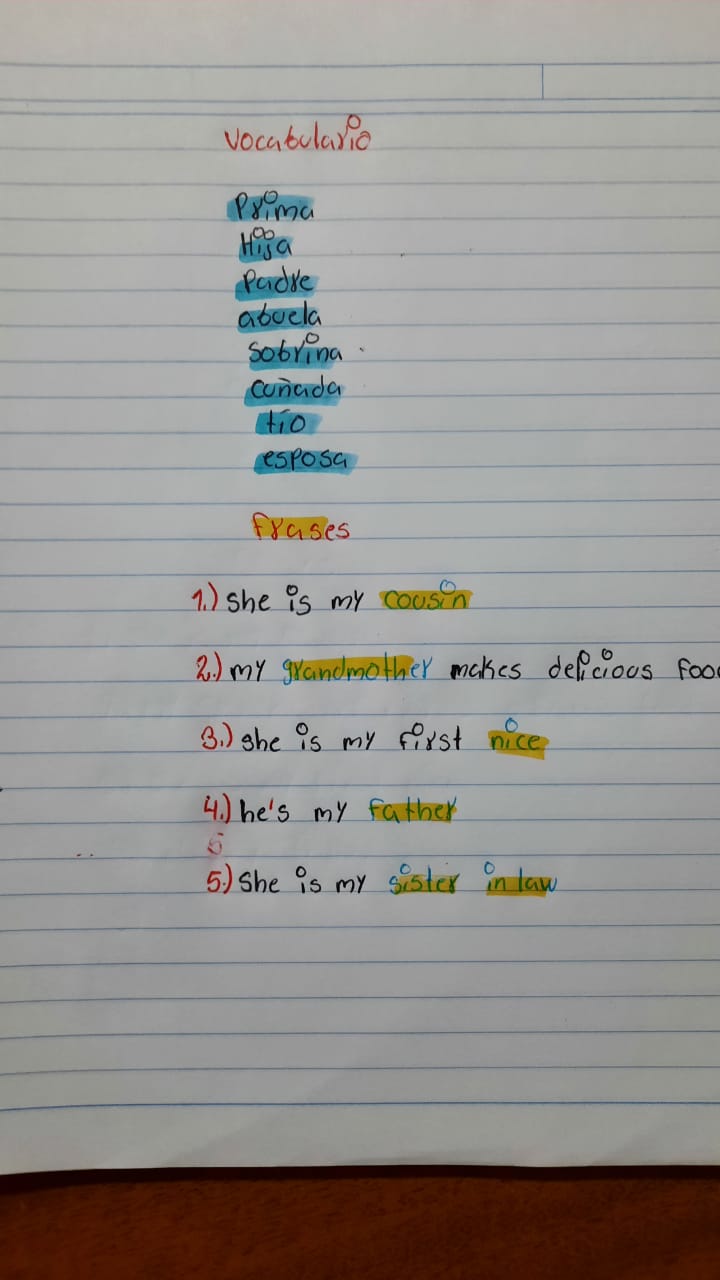 Vocabulario
Prima
Hija
Padre
abuela
Sobrina
cuñada
tío
esposa
frases
1.) she is my cousin
2.) my grandmother makes delicious
3.) she is my first nice
4.) he's my father
5
5.) She is my sister in law